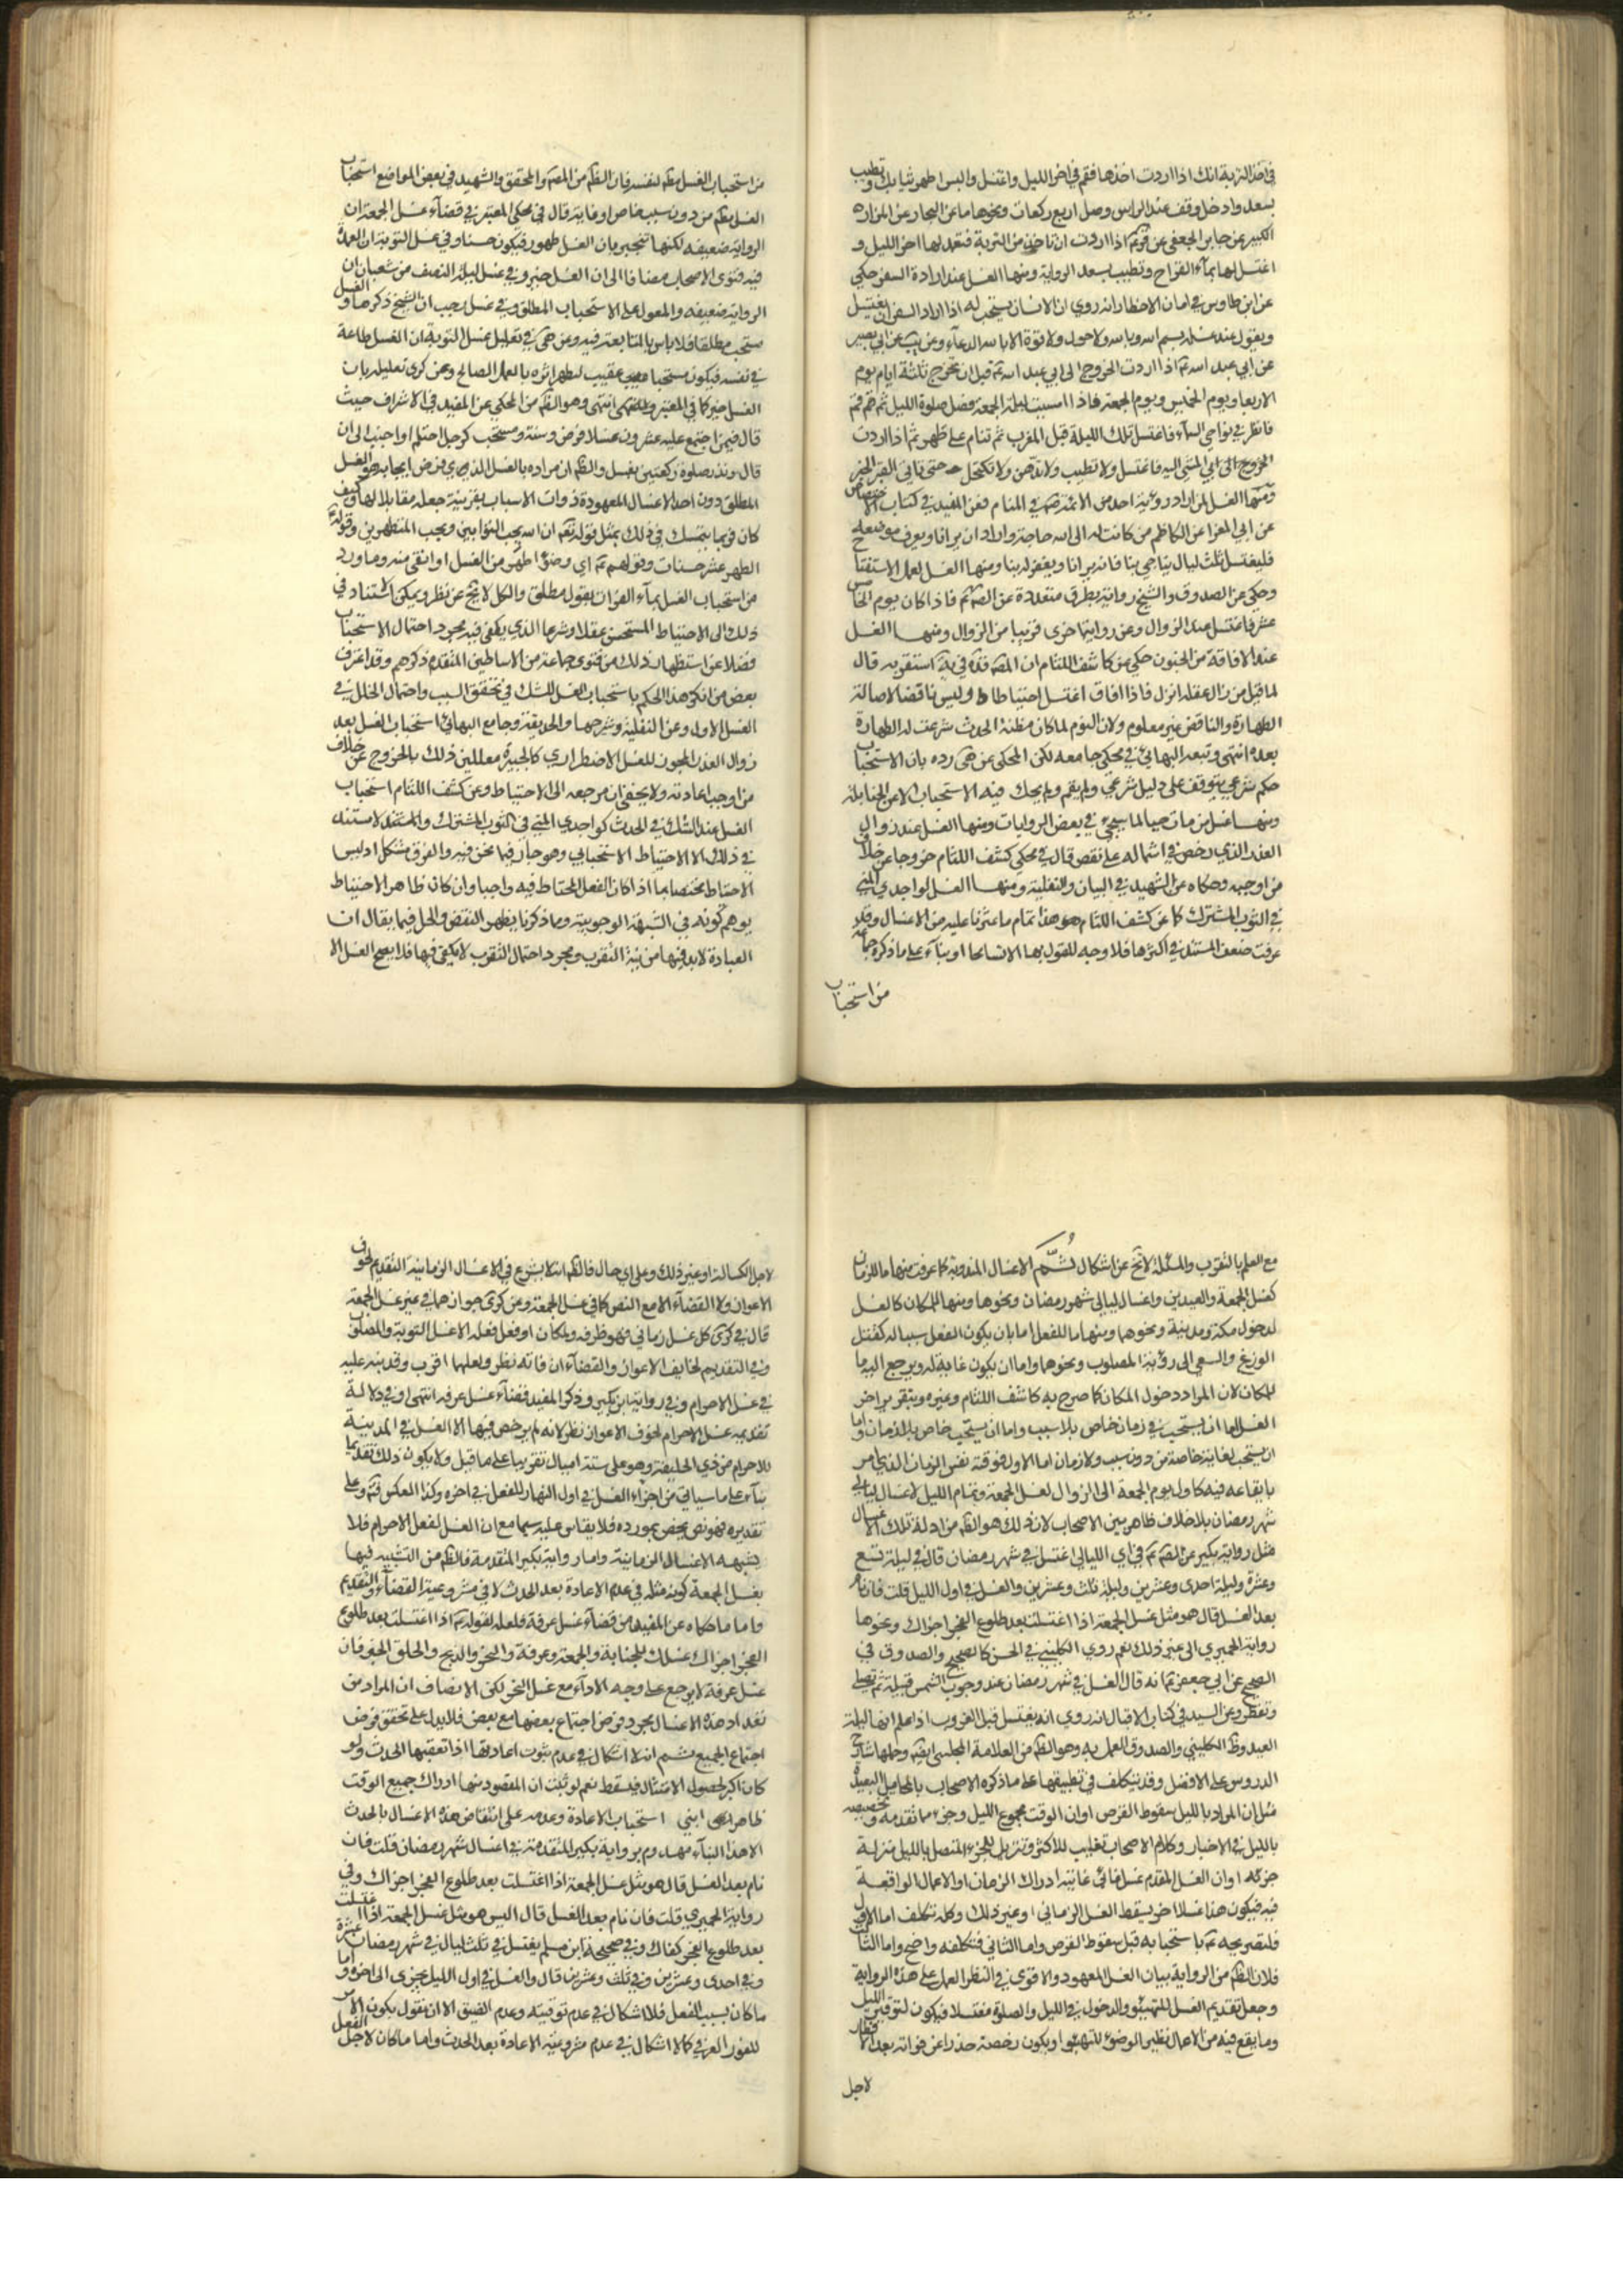 في اخذ التربة انك اذا اردت اخذها فقم في اخر الليل واغتسل والبس اطهر ثيابك وتطيب
بسعد وادخل وقف عند الراس وصل اربع ركعات ونحوها ما عن البحار عن المزار
الكبير عن جابر الجعفي عن قوله اذا اردت ان تاخذ من التربة فتعمد لها اخر الليل و
اغتسل لها بماء القراح وتطيب بسعد الرواية ومنها الغسل عند ارادة السفر حكي
عن ابن طاوس في امان الاخطار انه روي ان الانسان يستحب له اذا اراد السفر ان يغتسل
ويقول عند غسله بسم الله وبالله ولا حول ولا قوة الا بالله الدعاء وعن يب عن ابي بصير
عن ابي عبد الله ع اذا اردت الخروج الى ابي عبد الله ع قبل ان تخرج ثلثة ايام يوم
الاربعا ويوم الخميس ويوم الجمعة فاذا امسيت ليلة الجمعة فصل صلوة الليل ثم قم
فانظر في نواحي السماء فاغتسل تلك الليلة قبل المغرب ثم تنام على طهر ثم اذا اردت
الخروج الى ابي المشي اليه فاغتسل ولا تطيب ولا تدهن ولا تكتحل حتى تاتي القبر الخبر
ومنها الغسل لمن اراد رؤية احد من الائمة في المنام فعن المفيد في كتاب الاختصاص
عن ابي المغرا عن الكاظم من كانت له الى الله حاجة واراد ان يرانا ويعرف موضعه
فليغتسل ثلث ليال يناجي بنا فانه يرانا ويغفر له بنا ومنها الغسل لعمل الاستفتا
وحكي عن الصدوق والشيخ روايته بطرق متعددة عن الصم ع فاذا كان يوم الخامس
عشر فاغتسل عند الزوال وعن رواية اخرى قريبا من الزوال ومنها الغسل
عند الافاقة من الجنون حكي عن كاشف اللثام ان المصه قده في يه استقربه قال
لما قيل من زال عقله انزل فاذا افاق اغتسل احتياطا وليس ناقضا لاصالة
الطهارة والناقض غير معلوم ولان النوم لما كان مظنة الحدث شرعت له الطهارة
بعده انتهى وتبعه البهائي في محكي جامعه لكن المحكي عن هى رده بان الاستحباب
حكم شرعي يتوقف على دليل شرعي ولم يقم ولم يحك فيه الاستحباب الا عن الحنابلة
ومنها غسل من مات جنبا لما سيجيء في بعض الروايات ومنها الغسل عند زوال
العذر الذي رخص في اشماله على نقص قال في محكي كشف اللثام خروجا عن خلاف
من اوجبه وحكاه عن الشهيد في البيان والنفلية ومنها الغسل لواجدي المني
في الثوب المشترك كما عن كشف اللثام هذا تمام ما عثرنا عليه من الاغسال وقد
عرفت ضعف المستند في اكثرها فلا وجه للقول بها الا تسامحا او بناء على ما ذكره جماعة
من استحباب
من استحباب الغسل لنفسه فان الظم من المصه والمحقق والشهيد في بعض المواضع استحباب
الغسل من دون سبب خاص او غاية قال في محكي المعتبر في قضاء غسل الجمعة ان
الرواية ضعيفه لكنها تنجبر بان الغسل طهور فيكون حسنا وفي غسل التوبة ان العمدة
فيه فتوى الاصحاب مضافا الى ان الغسل خير وفي غسل ليلة النصف من شعبان ان
الرواية ضعيفه والمعول على الاستحباب المطلق وفي غسل رجب ان الشيخ ذكرها والغسل
مستحب مطلقا فلا باس بالمتابعة فيه وعن هى في تعليل غسل التوبة ان الغسل طاعة
في نفسه فيكون مستحبا عقيب ليظهر اثره بالعمل الصالح وعن كرى تعليله بان
الغسل خير كما في المعتبر انتهى وهو الظم من المحكي عن المفيد في الاشراف حيث
قال فيمن اجتمع عليه عشرون غسلا فرض وسنة ومستحب كرجل احتلم او اجنب الى ان
قال ونذر صلوة ركعتين بغسل والظم ان مراده بالغسل الذي فرض ايجابه هو الغسل
المطلق دون احد الاغسال المعهودة ذوات الاسباب بقرينة جعله مقابلا لها وكيف
كان فربما يتمسك في ذلك بمثل قوله تعم ان الله يحب التوابين ويحب المتطهرين وقوله ع
الطهر عشر حسنات وقولهم ع اي وضوء اطهر من الغسل او انقى منه وما ورد
من استحباب الغسل بماء الفرات بقول مطلق والكل لا يخ عن نظر ويمكن الاستناد في
ذلك الى الاحتياط المستحسن عقلا وشرعا الذي يكفي فيه مجرد احتمال الاستحباب
فضلا عن استظهار ذلك من فتوى جماعة من الاساطين المتقدم ذكرهم وقد اعترف
بعض من انكر هذا الحكم باستحباب الغسل للشك في تحقق السبب واحتمال الخلل في
الغسل الاول وعن النفلية وشرحها والحديقة وجامع البهائي استحباب الغسل بعد
زوال العذر المجوز للغسل الاضطراري كالجبيرة معللين ذلك بالخروج عن خلاف
من اوجب اعادته ولا يخفى ان مرجعه الى الاحتياط وعن كشف اللثام استحباب
الغسل عند الشك في الحدث كواجدي المني في الثوب المشترك والمستند لا مستند
في ذلك الا الاحتياط الاستحبابي وهو جار فيما نحن فيه والفرق مشكل اذ ليس
الاحتياط مختصا بما اذا كان الفعل المحتاط فيه واجبا وان كان ظاهر الاحتياط
يوهم كونه في الشبهة الوجوبية وما ذكرنا يظهر النقض والحل فيما يقال ان
العبادة لابد فيها من نية التقرب ومجرد احتمال التقرب لا يكفي فيها فلا يصح الغسل الا
مع العلم بالتقرب والمسئلة لا تخ عن اشكال ثم الاغسال المندوبة كما عرفت منها ما للزمان
كغسل الجمعة والعيدين واغسال ليالي شهر رمضان ونحوها ومنها للمكان كالغسل
لدخول مكة ومدينة ونحوهما ومنها ما للفعل اما بان يكون الفعل سببا له كقتل
الوزغ والسعي الى رؤية المصلوب ونحوهما واما ان يكون غاية له ويرجع اليه ما
للمكان لان المراد دخول المكان كما صرح به كاشف اللثام وغيره وبتقرير اخر
الغسل اما ان يستحب في زمان خاص بلا سبب واما ان يستحب خاص بلا زمان واما
ان يستحب لغاية خاصة من دون سبب ولا زمان اما الاول فوقته نفس الزمان الذي امر
بايقاعه فيه كاول يوم الجمعة الى الزوال لغسل الجمعة وتمام الليل لاغسال ليالي
شهر رمضان بلا خلاف ظاهر بين الاصحاب لان ذلك هو الظم من ادلة تلك الاغسال
مثل رواية بكير عن الصم ع في اي الليالي اغتسل في شهر رمضان قال في ليلة تسع
وعشرة وليلة احدى وعشرين وليلة ثلث وعشرين والغسل في اول الليل قلت فان نام
بعد الغسل قال هو مثل غسل الجمعة اذا اغتسلت بعد طلوع الفجر اجزاك ونحوها
رواية الحميري الى غير ذلك نعم روي الكليني في الحسن كالصحيح والصدوق في
الصحيح عن ابي جعفر ع انه قال الغسل في شهر رمضان عند وجوب الشمس قبيله ثم تصلي
وتفطر وعن السيد في كتاب الاقبال انه روي انه يغتسل قبل الغروب اذا علم انها ليلة
العيد وظ الكليني والصدوق العمل به وهو الظم من العلامة المجلسي ايضا وحملها شارح
الدروس على الافضل وقد يتكلف في تطبيقها على ما ذكره الاصحاب بالمحامل البعيدة
مثل ان المراد بالليل سقوط القرص او ان الوقت مجموع الليل وجزء مما تقدمه وتخصيصه
بالليل في الاخبار وكلام الاصحاب تغليب للاكثر وتنزيل للجزء المتصل بالليل منزلة
جزئه او ان الغسل المقدم غسل غائي غايته ادراك الزمان او الاعمال الواقعة
فيه فيكون هذا غسلا اخر يسقط الغسل الزماني او غير ذلك وكله تكلف اما الاول
فلتصريحه ع باستحبابه قبل سقوط القرص واما الثاني فتكلفه واضح واما الثالث
فلان الظم من الرواية بيان الغسل المعهود والاقوى في النظر العمل على هذه الرواية
وجعل تقديم الغسل للتهيئو والدخول في الليل والصلوة مغتسلا فيكون لتوقير الليل
وما يقع فيه من الاعمال نظير الوضوء للتهيئو او يكون رخصة حذرا عن فواته بعد الافطار
لاجل
لاجل الكسالة او غير ذلك وعلى اي حال فالظم انه لا يشرع في الاغسال الزمانية التقديم لخوف
الاعواز ولا القضاء الا مع النص كما في غسل الجمعة وعن كرى جوازهما في غير غسل الجمعة
قال في كرى كل غسل زماني فهو ظرفه ولمكان او فعل فعله الا غسل التوبة والمصلوب
وفي التقديم لخايف الاعواز والقضاء ان فاته نظر ولعلهما اقرب وقد نبه عليه
في غسل الاحرام وفي رواية ابن بكير وذكر المفيد قضاء غسل عرفه انتهى وفي دلالة
تقديم غسل الاحرام لخوف الاعواز نظر لانه لم يرخص فيها الا الغسل في المدينة
للاحرام من ذي الحليفة وهو على ستة اميال تقريبا على ما قيل ولا يكون ذلك تقديما
بناء على ما سياتي من اجزاء الغسل في اول النهار للفعل في اخره وكذا العكس فتم وعلى
تقديره فهو نص يختص بمورده فلا يقاس عليه سيما مع ان الغسل لفعل الاحرام فلا
يشبهه الاغسال الزمانية واما رواية بكير المتقدمة فالظم من التشبيه فيها
بغسل الجمعة كونه مثله في عدم الاعادة بعد الحدث لا في مشروعية القضاء والتقديم
واما ما حكاه عن المفيد من قضاء غسل عرفة فلعله لقوله ع اذا اغتسلت بعد طلوع
الفجر اجزاك غسلك للجنابة والجمعة وعرفة والنحر والذبح والحلق الخبر فان
غسل عرفة لا يرجع على وجه الاداء مع غسل النحر لكن الانصاف ان المراد من
تعداد هذه الاغسال مجرد فرض اجتماع بعضها مع بعض فلا يدل على تحقق فرض
اجتماع الجميع ثم انه لا اشكال في عدم ثبوت اعادتها اذا تعقبها الحدث ولو
كان اكبر لحصول الامتثال فيسقط نعم لو ثبت ان المقصود منها ادراك جميع الوقت
طاهرا ابتني استحباب الاعادة وعدمه على انتقاض هذه الاغسال بالحدث
الا هذا البناء مهدوم برواية بكير المتقدمة في اغسال شهر رمضان قلت فان
نام بعد الغسل قال هو مثل غسل الجمعة اذا اغتسلت بعد طلوع الفجر اجزاك وفي
رواية الحميري قلت فان نام بعد الغسل قال اليس هو مثل غسل الجمعة اذا اغتسلت
بعد طلوع الفجر كفاك وفي صحيحة ابن مسلم يغتسل في ثلث ليال في شهر رمضان عشرة
وفي احدى وعشرين وفي ثلث وعشرين قال والغسل في اول الليل يجزى الى اخره واما
ما كان بسبب الفعل فلا اشكال في عدم توقيته وعدم الضيق الا ان نقول بكون الامر
للفور العرفي كما لا اشكال في عدم مشروعية الاعادة بعد الحدث واما ما كان لاجل الفعل